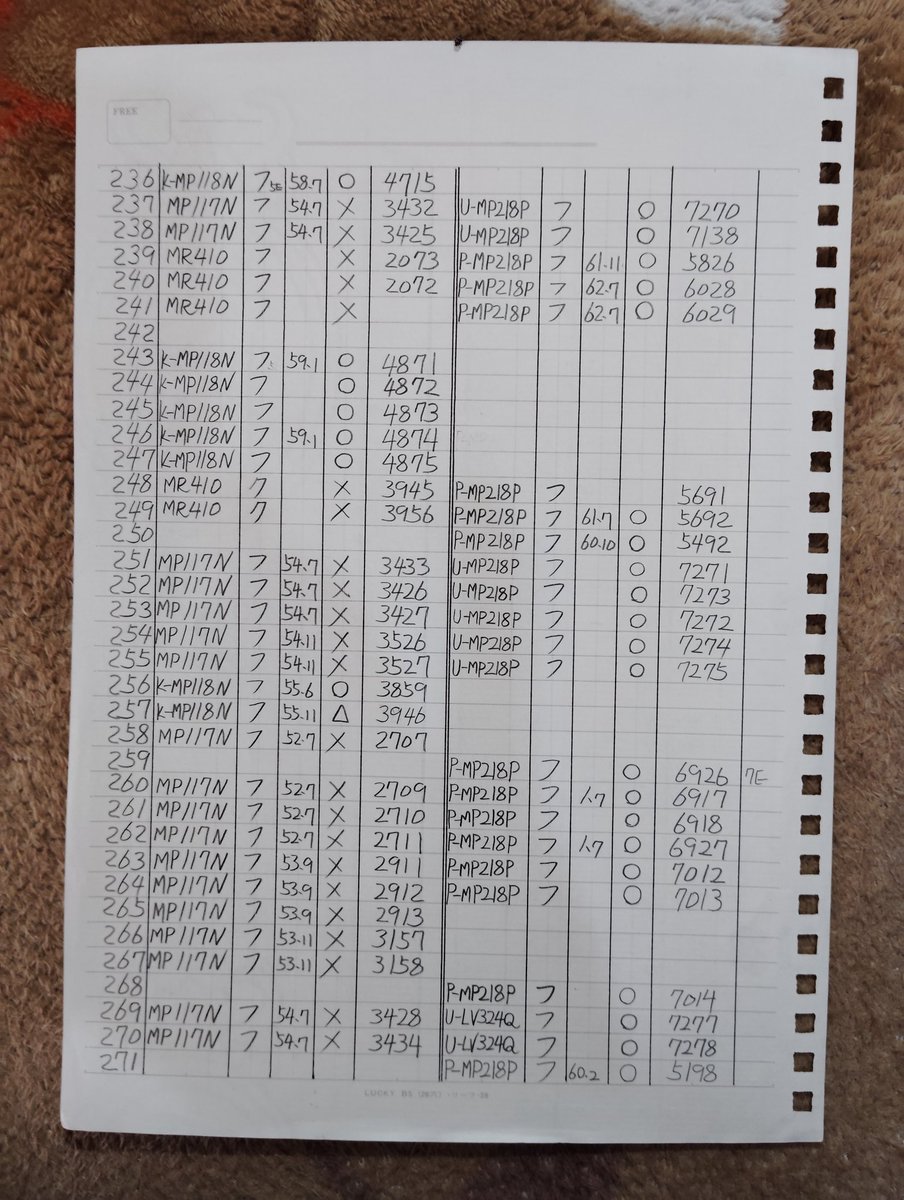 FREE
236 K-MP118N フ5E 58.7 ○ 4715
237 MP117N フ 54.7 × 3432 U-MP218P フ ○ 7270
238 MP117N フ 54.7 × 3425 U-MP218P フ ○ 7138
239 MR410 フ × 2073 P-MP218P フ 61.11 ○ 5826
240 MR410 フ × 2072 P-MP218P フ 62.7 ○ 6028
241 MR410 フ × P-MP218P フ 62.7 ○ 6029
242
243 K-MP118N フ 59.1 ○ 4871
244 K-MP118N フ ○ 4872
245 K-MP118N フ ○ 4873
246 K-MP118N フ 59.1 ○ 4874
247 K-MP118N フ ○ 4875
248 MR410 フ × 3945 P-MP218P フ 5691
249 MR410 フ × 3956 P-MP218P フ 61.7 ○ 5692
250 P-MP218P フ 60.10 ○ 5492
251 MP117N フ 54.7 × 3433 U-MP218P フ ○ 7271
252 MP117N フ 54.7 × 3426 U-MP218P フ ○ 7273
253 MP117N フ 54.7 × 3427 U-MP218P フ ○ 7272
254 MP117N フ 54.11 × 3526 U-MP218P フ ○ 7274
255 MP117N フ 54.11 × 3527 U-MP218P フ ○ 7275
256 K-MP118N フ 55.6 ○ 3859
257 K-MP118N フ 55.11 △ 3946
258 MP117N フ 52.7 × 2707
259 P-MP218P フ ○ 6926 7E
260 MP117N フ 52.7 × 2709 P-MP218P フ 1.7 ○ 6917
261 MP117N フ 52.7 × 2710 P-MP218P フ ○ 6918
262 MP117N フ 52.7 × 2711 P-MP218P フ 1.7 ○ 6927
263 MP117N フ 53.9 × 2911 P-MP218P フ ○ 7012
264 MP117N フ 53.9 × 2912 P-MP218P フ ○ 7013
265 MP117N フ 53.9 × 2913
266 MP117N フ 53.11 × 3157
267 MP117N フ 53.11 × 3158
268 P-MP218P フ ○ 7014
269 MP117N フ 54.7 × 3428 U-LV324Q フ ○ 7277
270 MP117N フ 54.7 × 3434 U-LV324Q フ ○ 7278
271 P-MP218P フ 60.2 ○ 5198